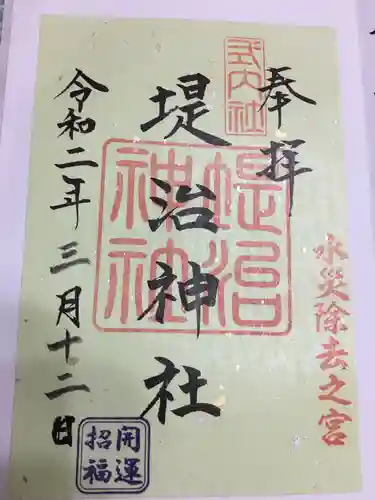 奉拝
式内社
堤治神社
堤治神社
水災除去之宮
令和二年三月十二日
開運招福